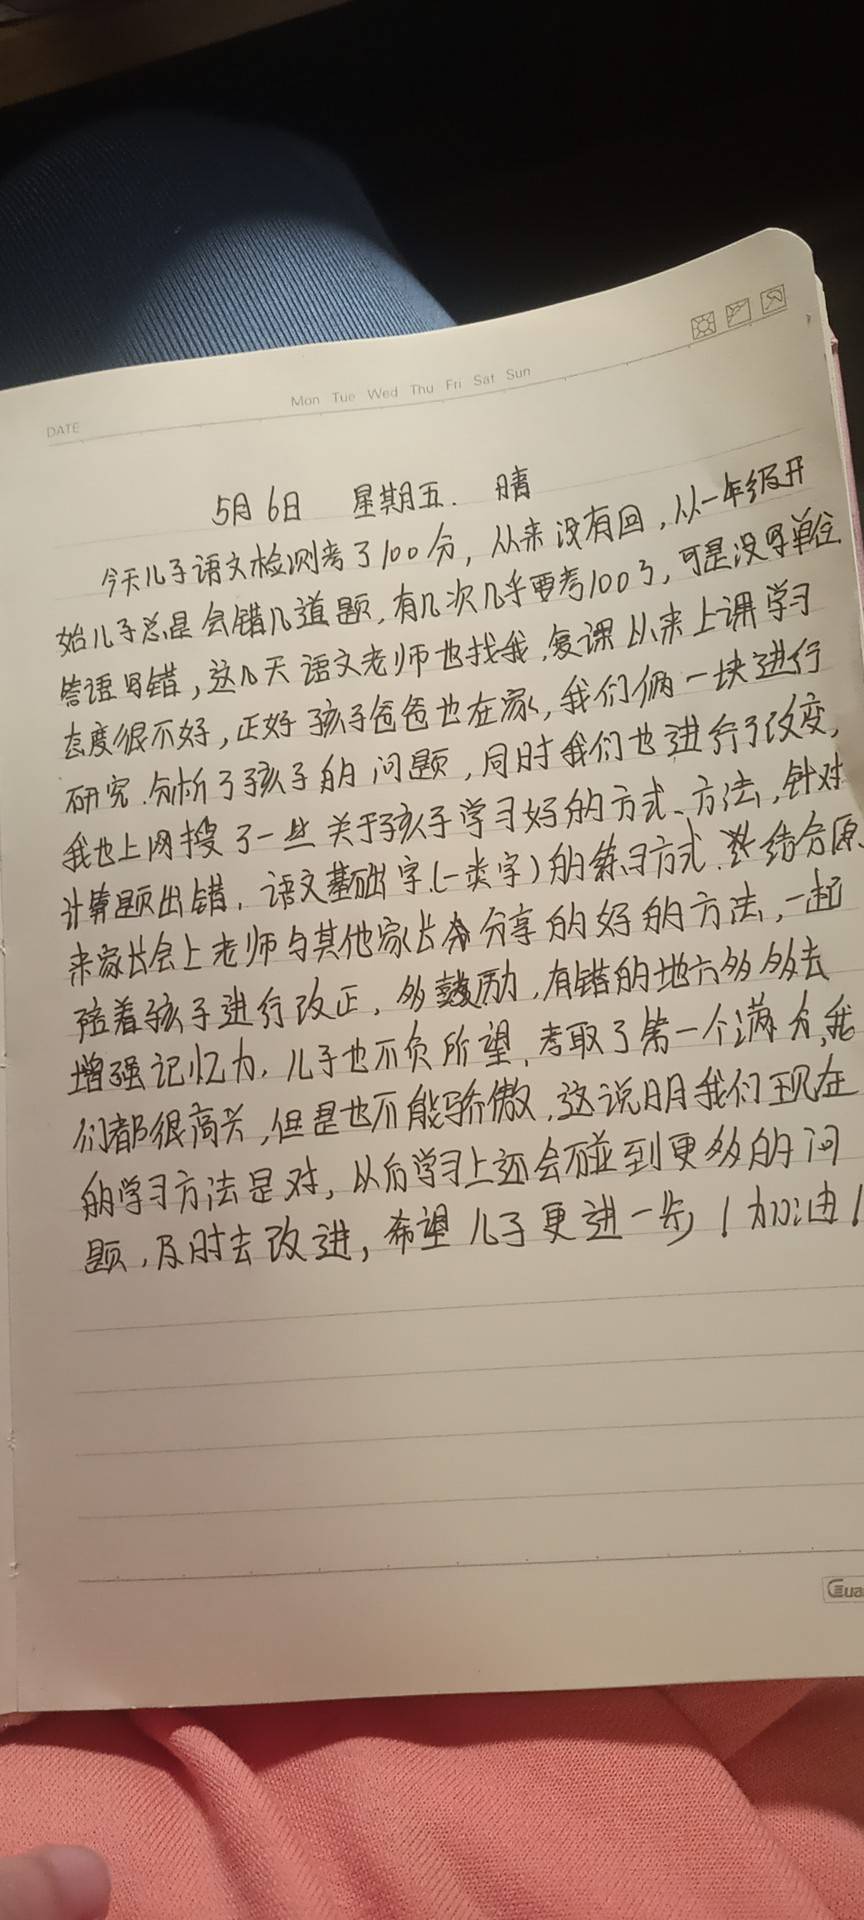 DATE
Mon Tue Wed Thu Fri Sat Sun
5月6日 星期五. 晴
今天儿子语文检测考了100分,从来没有回,从一年级开
始儿子总是会错几道题,有几次几乎要考100了,可是没写单位
答语写错,这几天语文老师也找我,复课以来上课学习
态度很不好,正好孩子爸爸也在家,我们俩一块进行
研究.分析了孩子的问题,同时我们也进行了改变,
我也上网搜了一些关于孩子学习好的方式、方法,针对
计算题出错,语文基础字(一类字)的练习方式.结合原
来家长会上老师与其他家长分享的好的方法,一起
陪着孩子进行改正,多鼓励,有错的地方多多去
增强记忆力.儿子也不负所望,考取了第一个满分,我
们都很高兴,但是也不能骄傲,这说明我们现在
的学习方法是对,以后学习上还会碰到更多的问
题,及时去改进,希望儿子更进一步!加油!